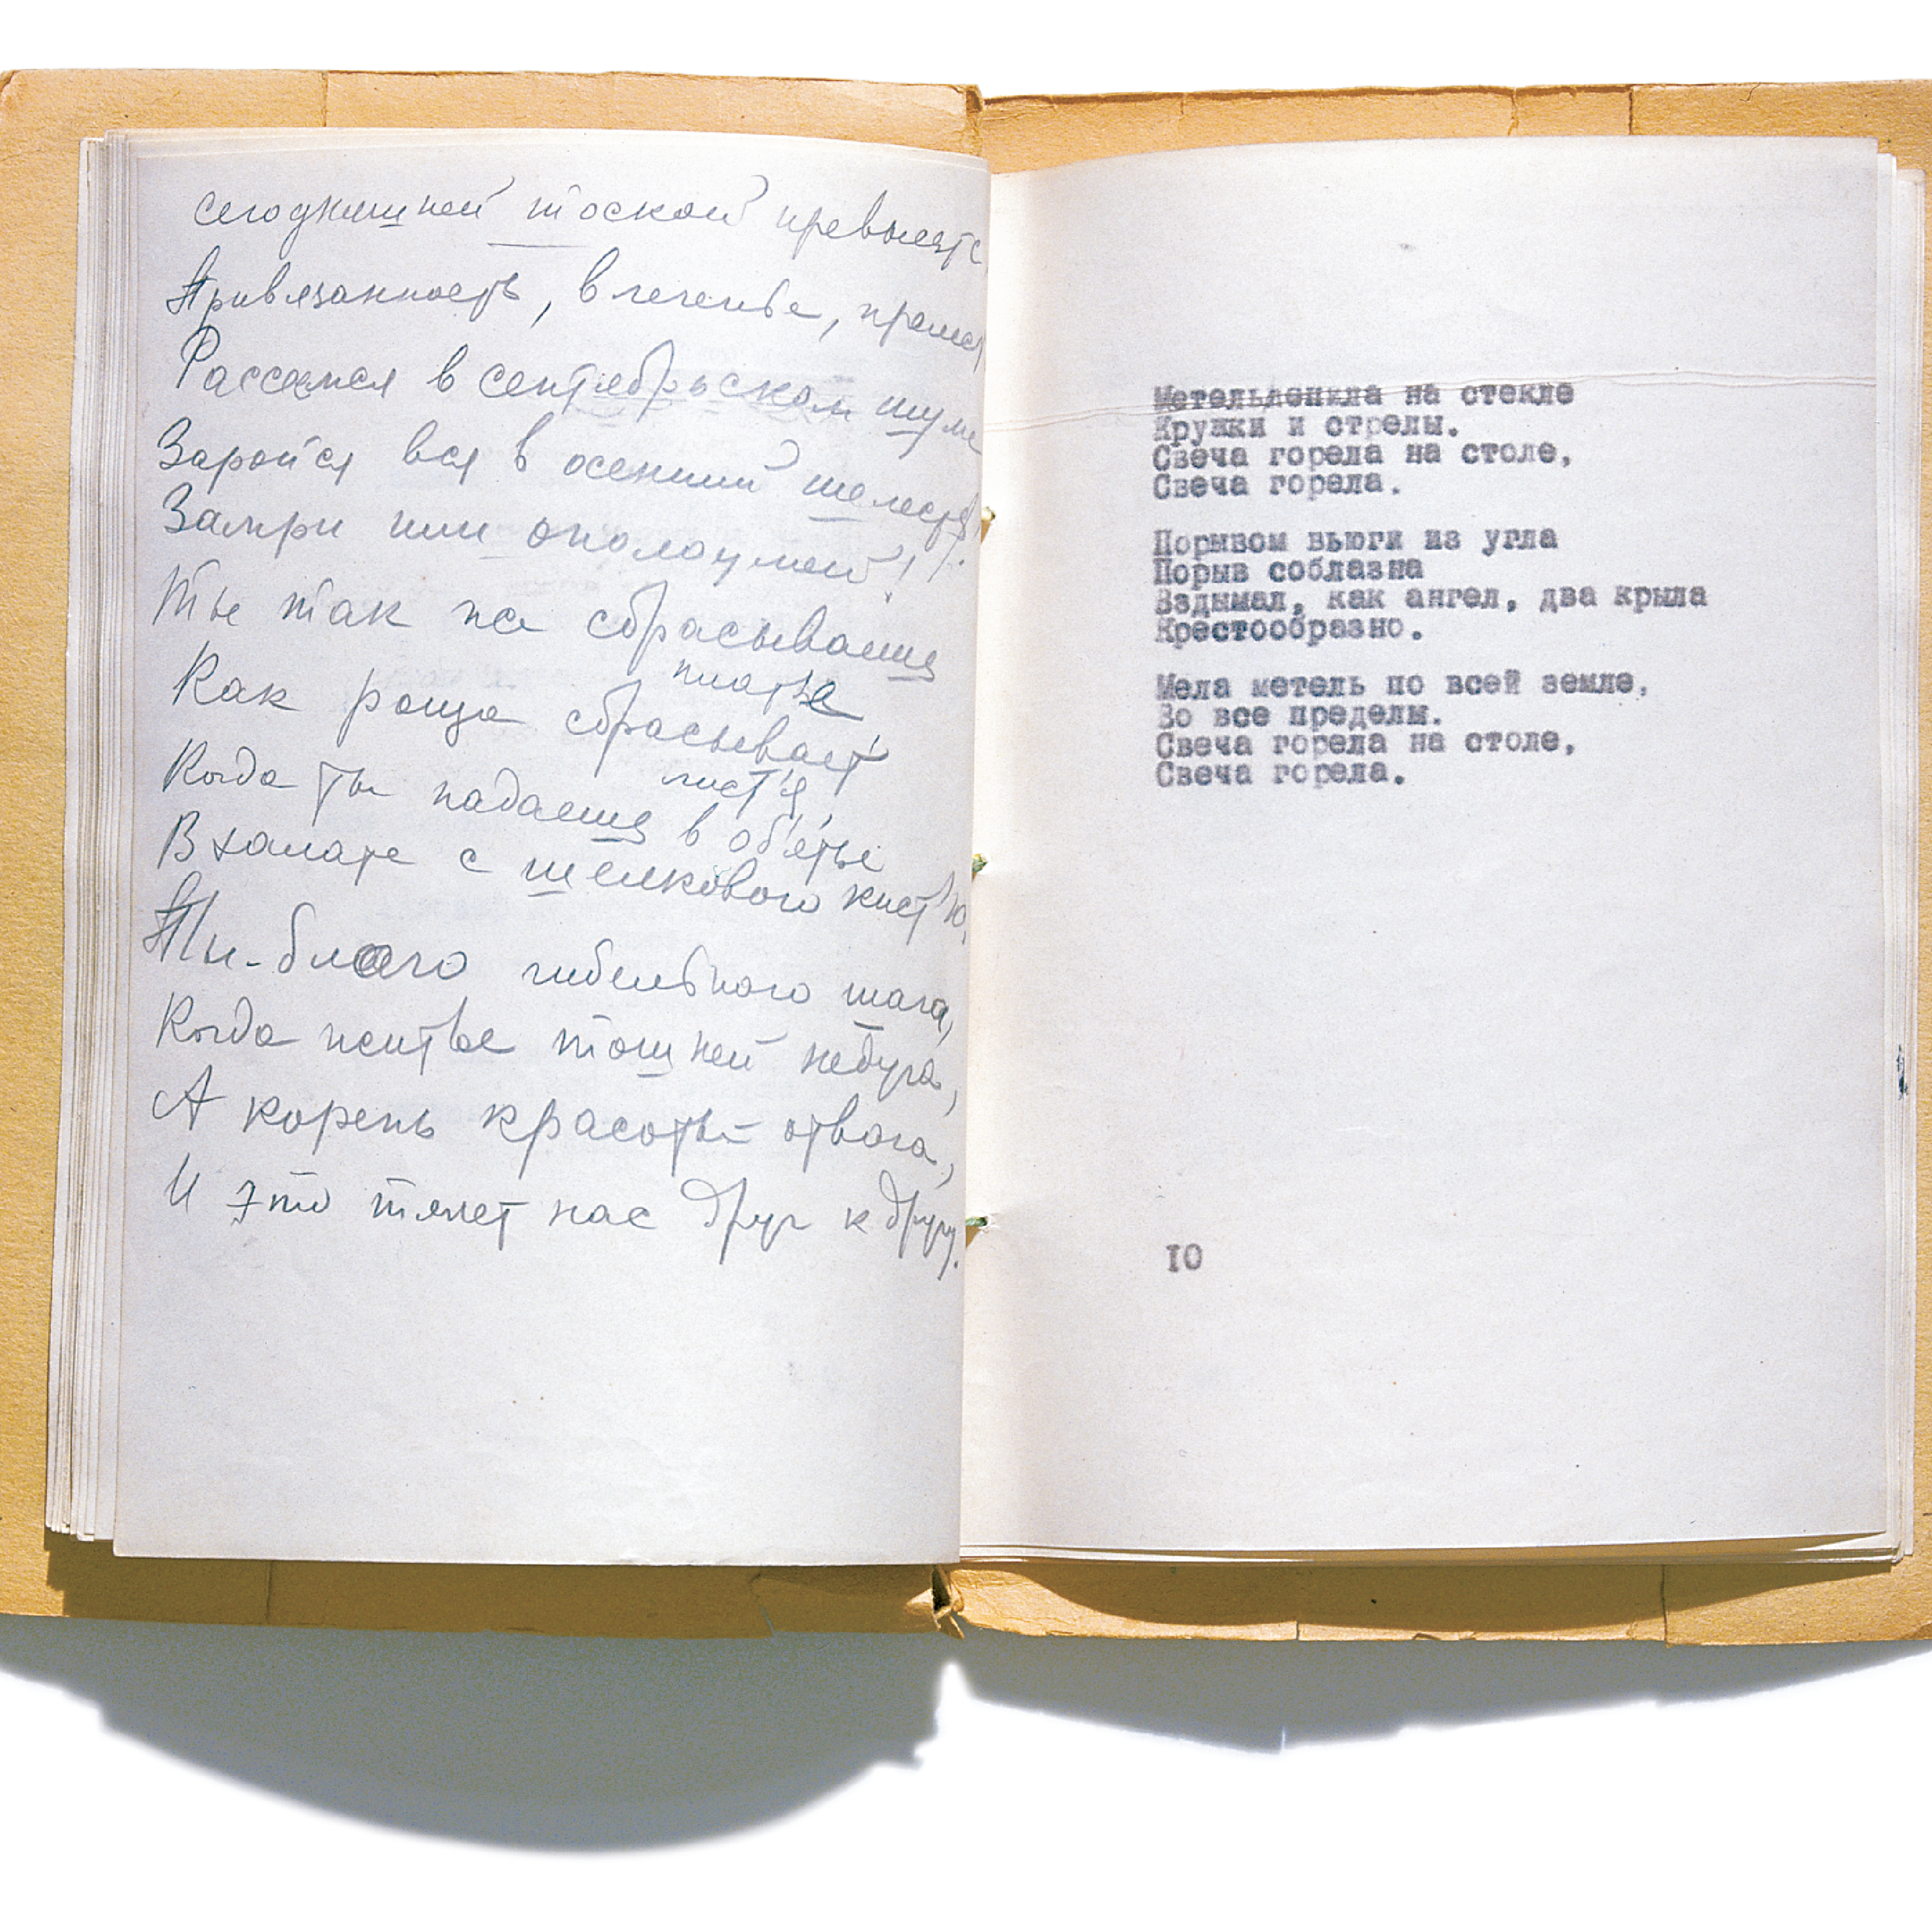 сегодняшней тоской превысь
Привязанность, влеченье, прелесть
Рассейся в сентябрьском шуме
Заройся вся в осенний шелест!
Замри или ополоумей!
Ты так же сбрасываешь
платье
Как роща сбрасывает
лист'я,
Когда ты падаешь в об'ятье
В халате с шелковою кист'ю,
Ты-благо гибельного шага,
Когда житье тошней недуга,
А корень красоты отвага,
И это тянет нас друг к другу.
Метельденила на стекле
Кружки и стрелы.
Свеча горела на столе,
Свеча горела.
Порывом вьюги из угла
Порыв соблазна
Вздымал, как ангел, два крыла
Крестообразно.
Мела метель по всей земле,
Во все пределы.
Свеча горела на столе,
Свеча горела.
10